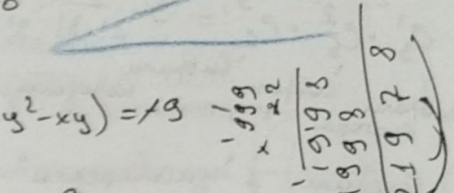 y²-xy) = 19
999
x 22
1998
1998
21978